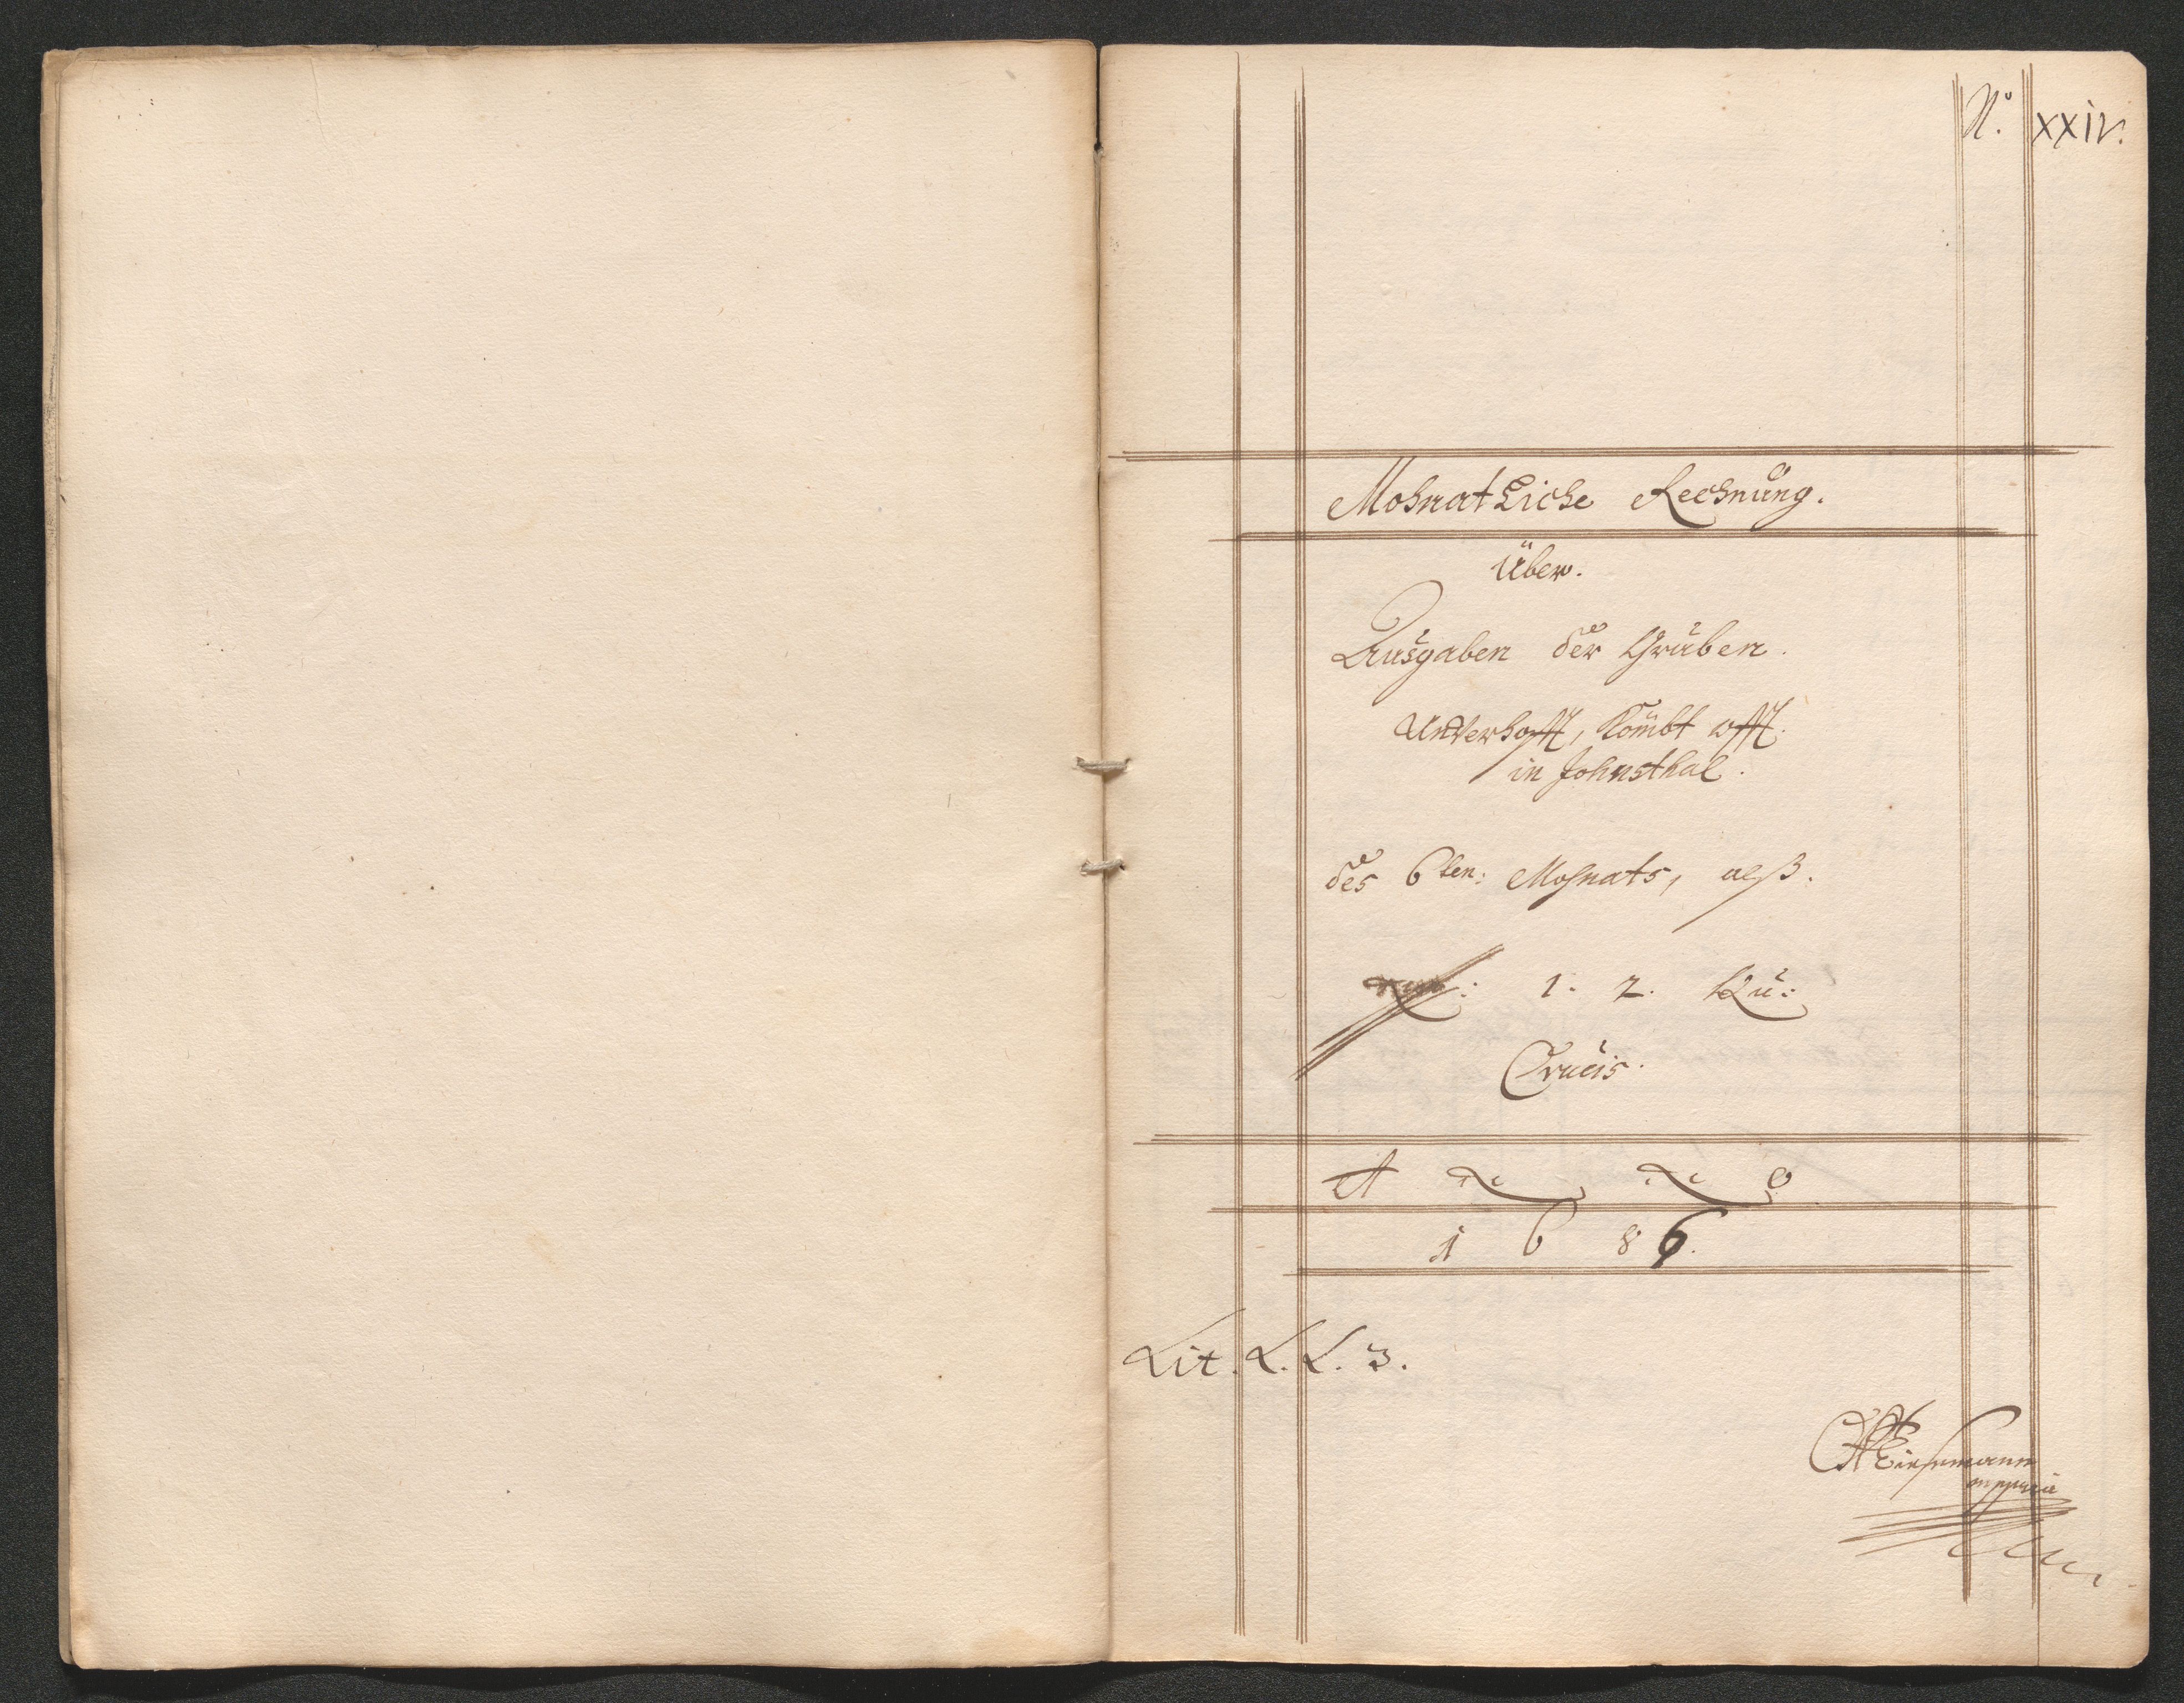 No. XXIV.
Mohnatliche Rechnung.
Über.
Ausgaben der Gruben.
Unverhofft, Kombt offt.
in Johnsthal.
des 6ten: Mohnats, alß.
1. 2. Qu:
Crucis.
A
1686.
Lit. L. L. 3.
mppria